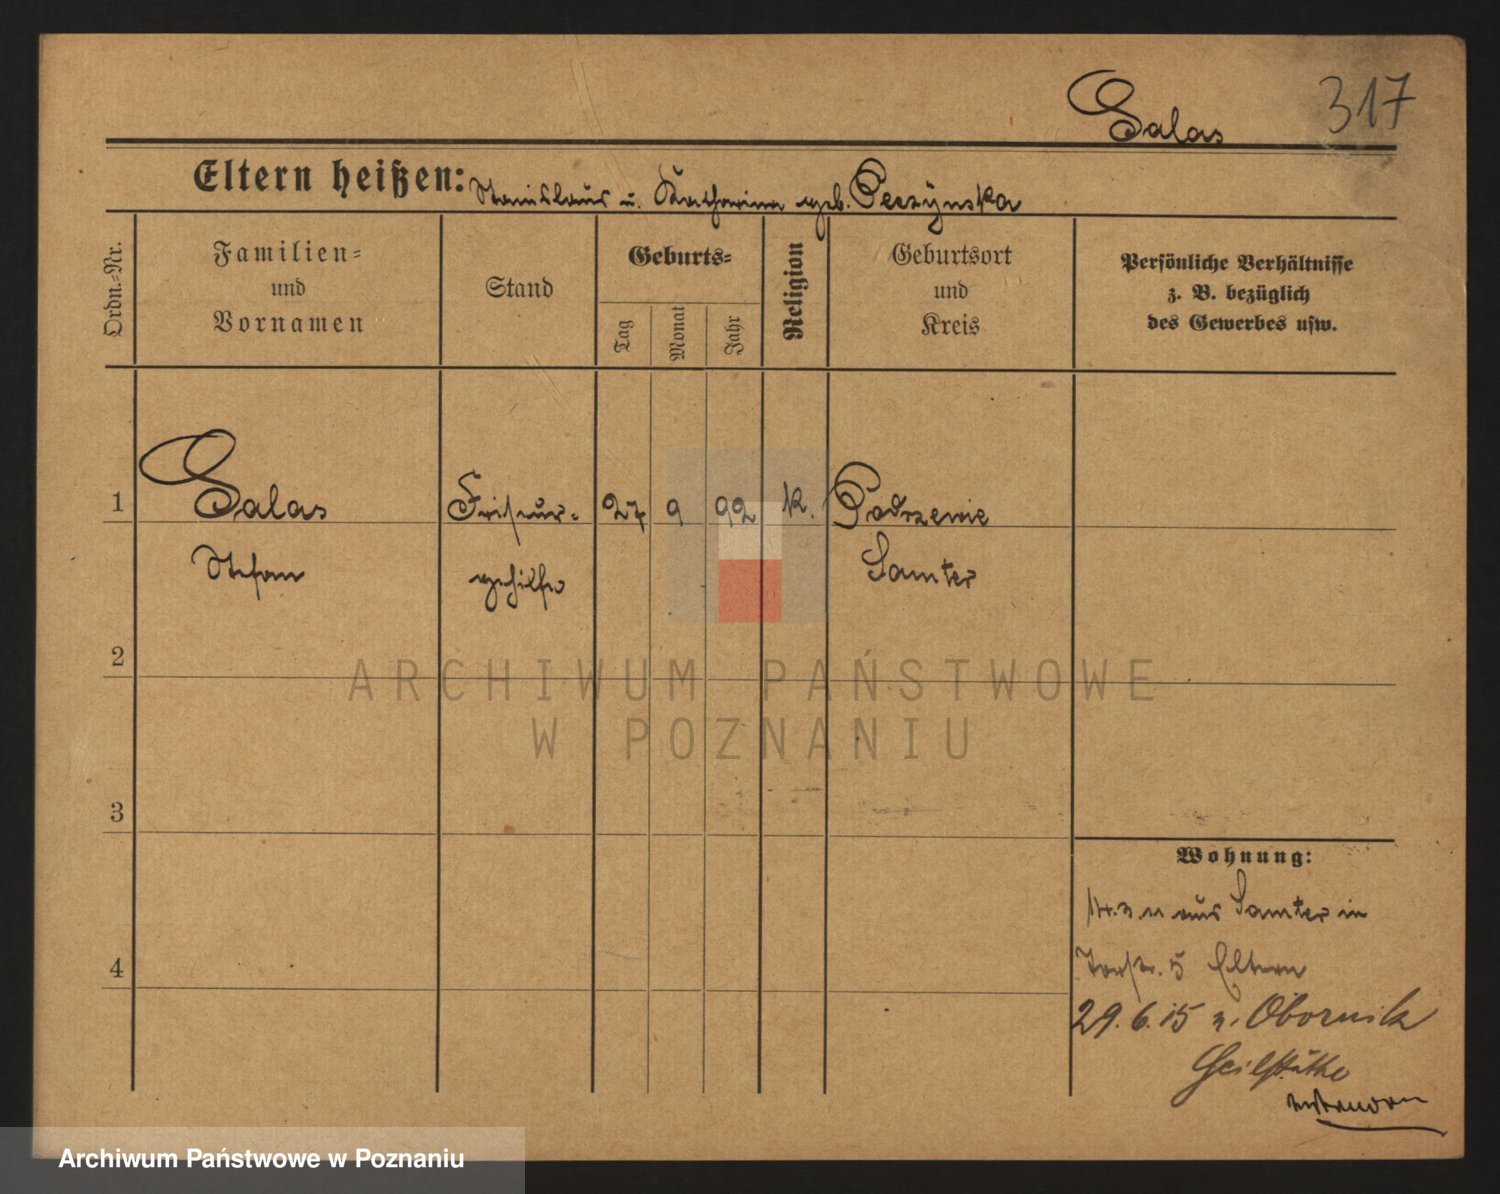 317
Salas
Eltern heißen: Stanislaus u. Katharina geb. Peczynska
Ordn.=Nr.
Familien=
und
Vornamen
Stand
Geburts=
Tag
Monat
Jahr
Religion
Geburtsort
und
Kreis
Persönliche Verhältnisse
z. B. bezüglich
des Gewerbes usw.
1 Salas Friseur- 27 9 92 k. Podrzewie
Stefan gehilfe Samter
2
3
4
Wohnung:
14.3.11 aus Samter in
5 Eltern
29.6.15 n. Obornik
Heilstätte
ARCHIWUM PAŃSTWOWE
W POZNANIU
Archiwum Państwowe w Poznaniu